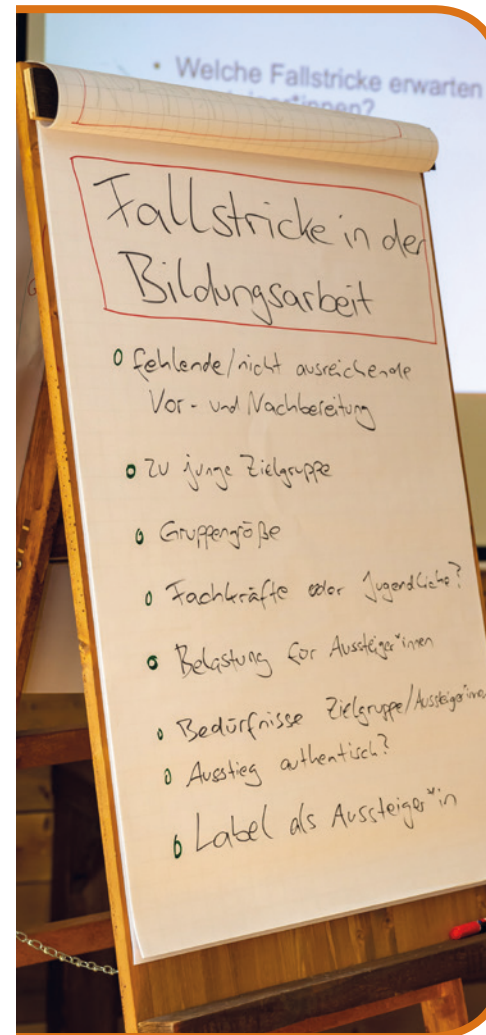 • Welche Fallstricke erwarten
innen?
Fallstricke in der
Bildungsarbeit
fehlende/nicht ausreichende
Vor- und Nachbereitung
zu junge Zielgruppe
Gruppengröße
Fachkräfte oder Jugendliche?
Belastung für Aussteiger*innen
Bedürfnisse Zielgruppe/Aussteiger*innen
Ausstieg authentisch?
Label als Aussteiger*in